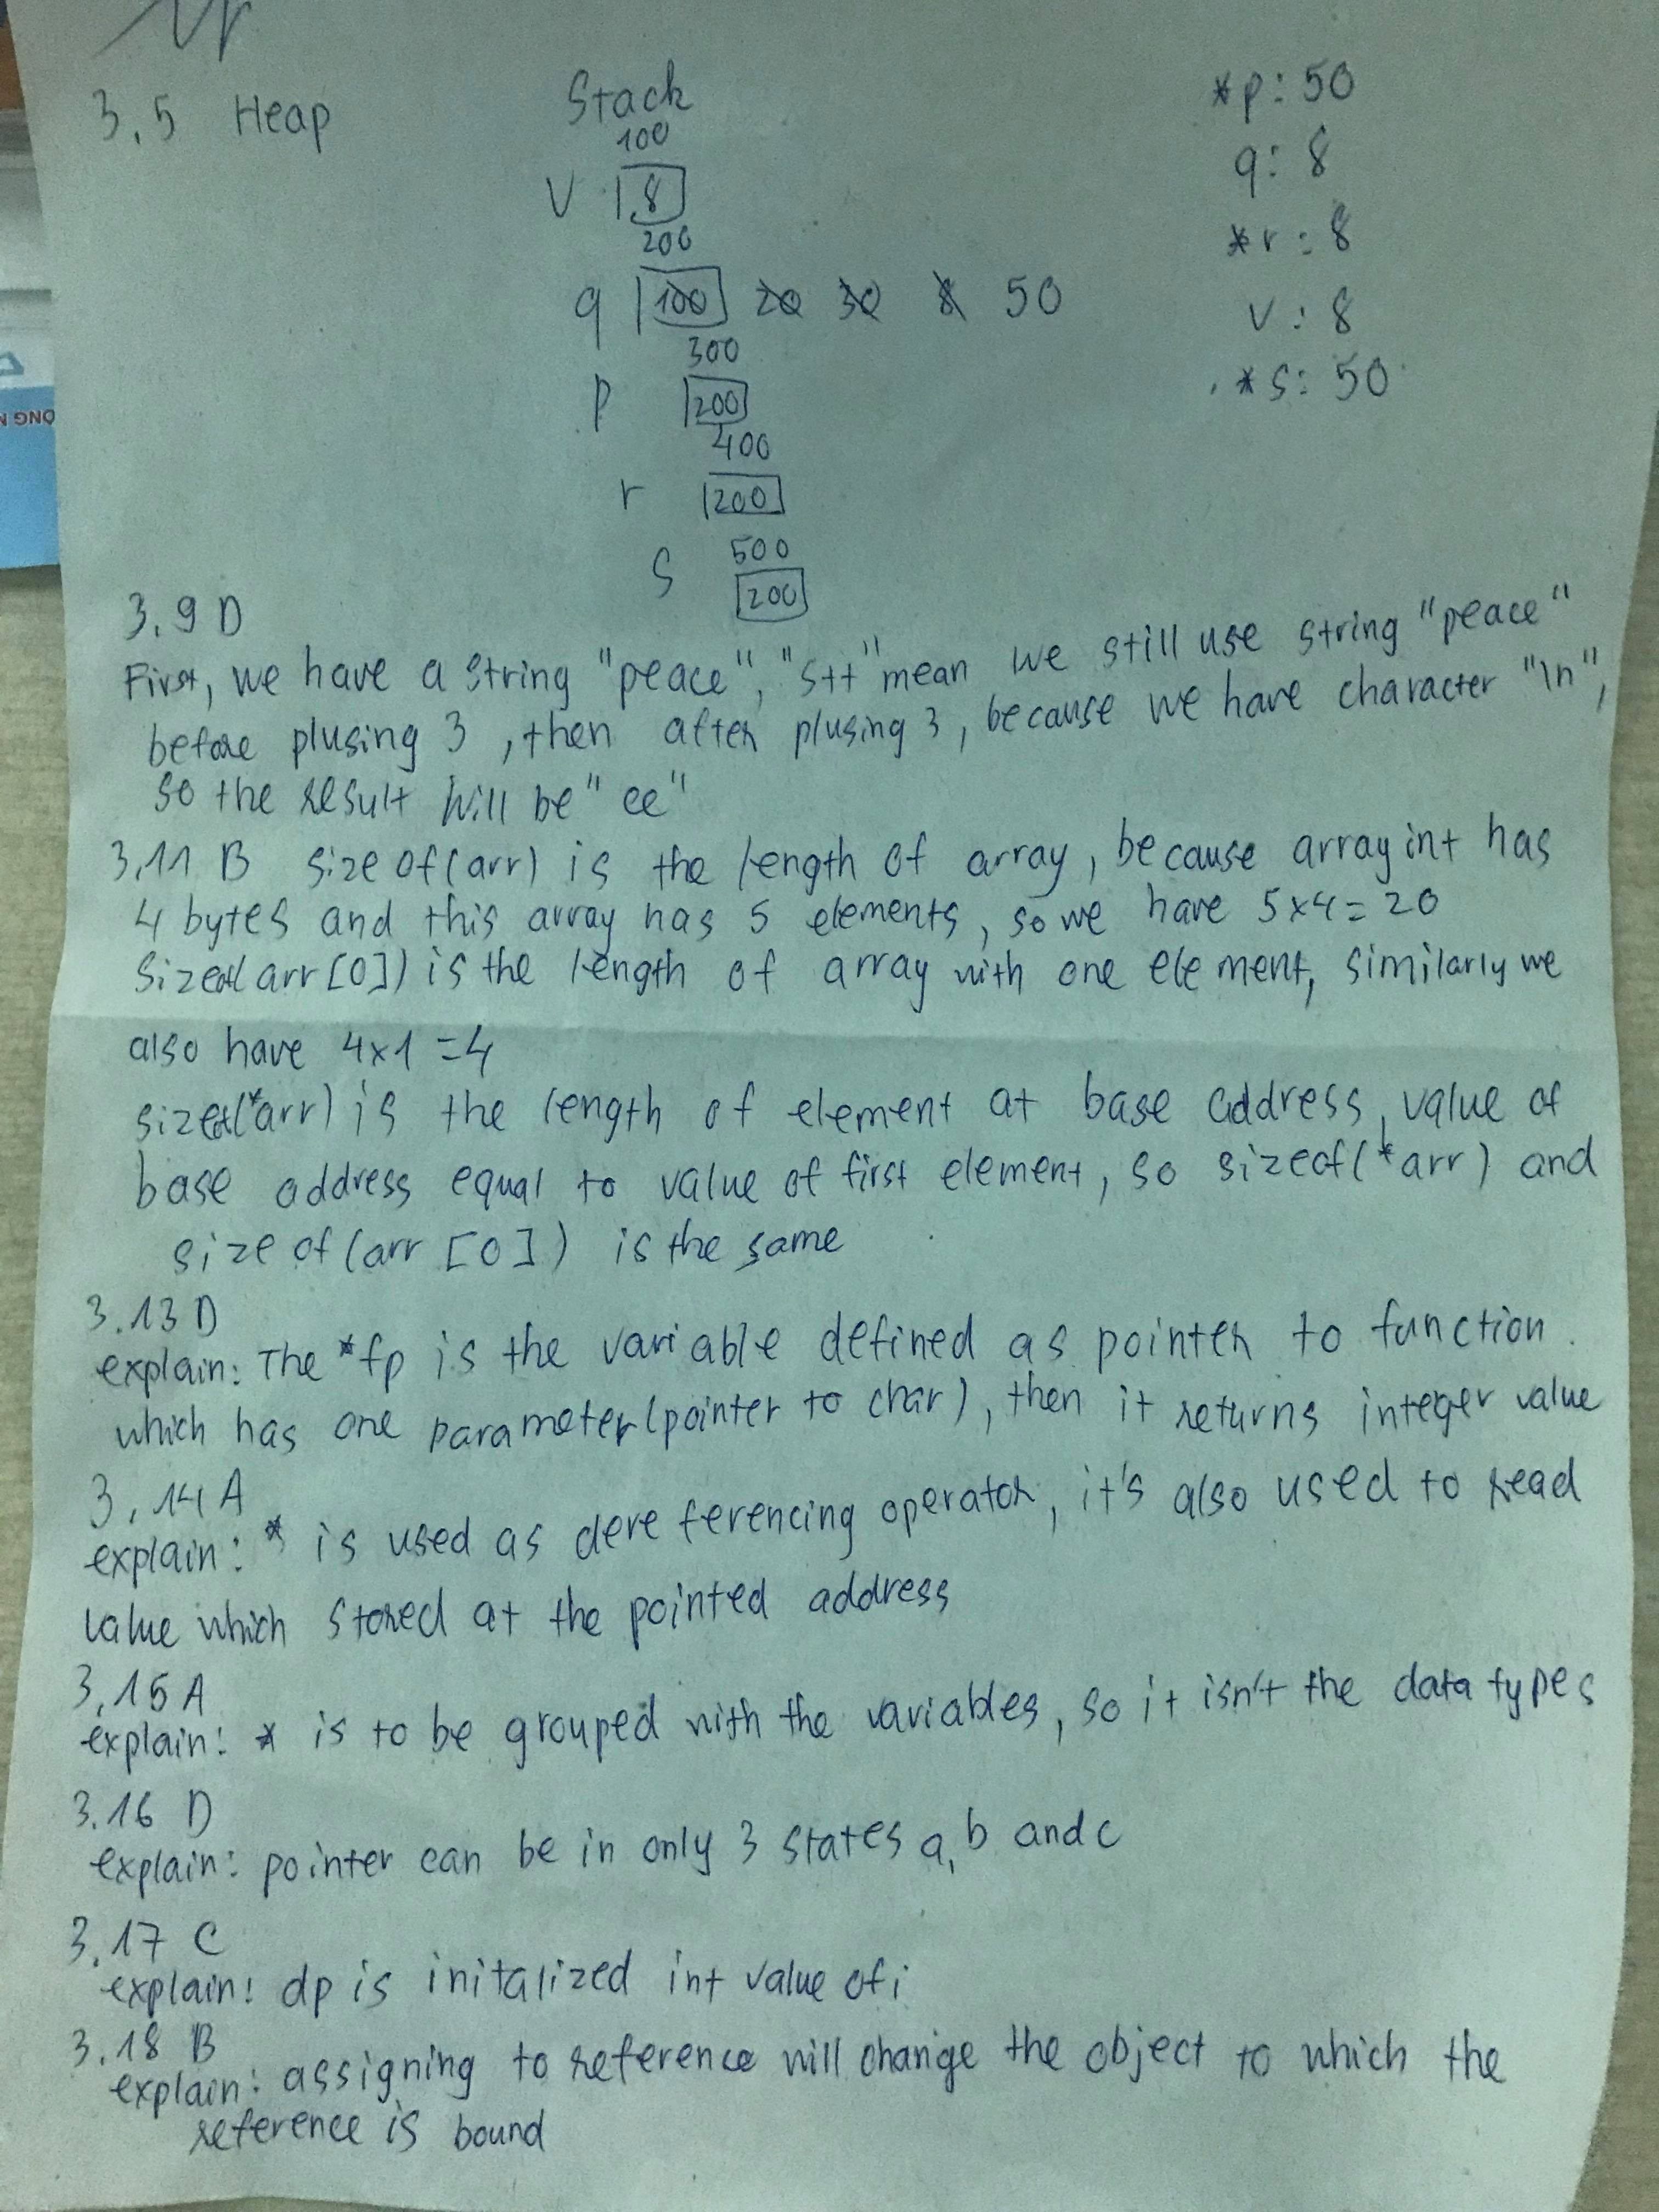 3.5 Heap
Stack
100
V 8
200
q 100 20 30 8 50
300
p 200
400
r 200
500
S 200
*p: 50
q: 8
*r: 8
v: 8
*s: 50
3.9 D
First, we have a string "peace", "s++" mean we still use string "peace"
before plusing 3, then after plusing 3, because we have character "\n",
so the result will be "ee"
3.11 B size of(arr) is the length of array, because array int has
4 bytes and this array has 5 elements, so we have 5x4=20
sizeof(arr[0]) is the length of array with one element, similarly we
also have 4x1=4
sizeof(*arr) is the length of element at base address, value of
base address equal to value of first element, so sizeof(*arr) and
size of (arr [0]) is the same
3.13 D
explain: The *fp is the variable defined as pointer to function.
which has one parameter (pointer to char), then it returns integer value
3.14 A
explain: * is used as dereferencing operator, it's also used to read
value which stored at the pointed address
3.15 A
explain: * is to be grouped with the variables, so it isn't the data types
3.16 D
explain: pointer can be in only 3 states a, b and c
3.17 C
explain: dp is initalized int value of i
3.18 B
explain: assigning to reference will change the object to which the
reference is bound